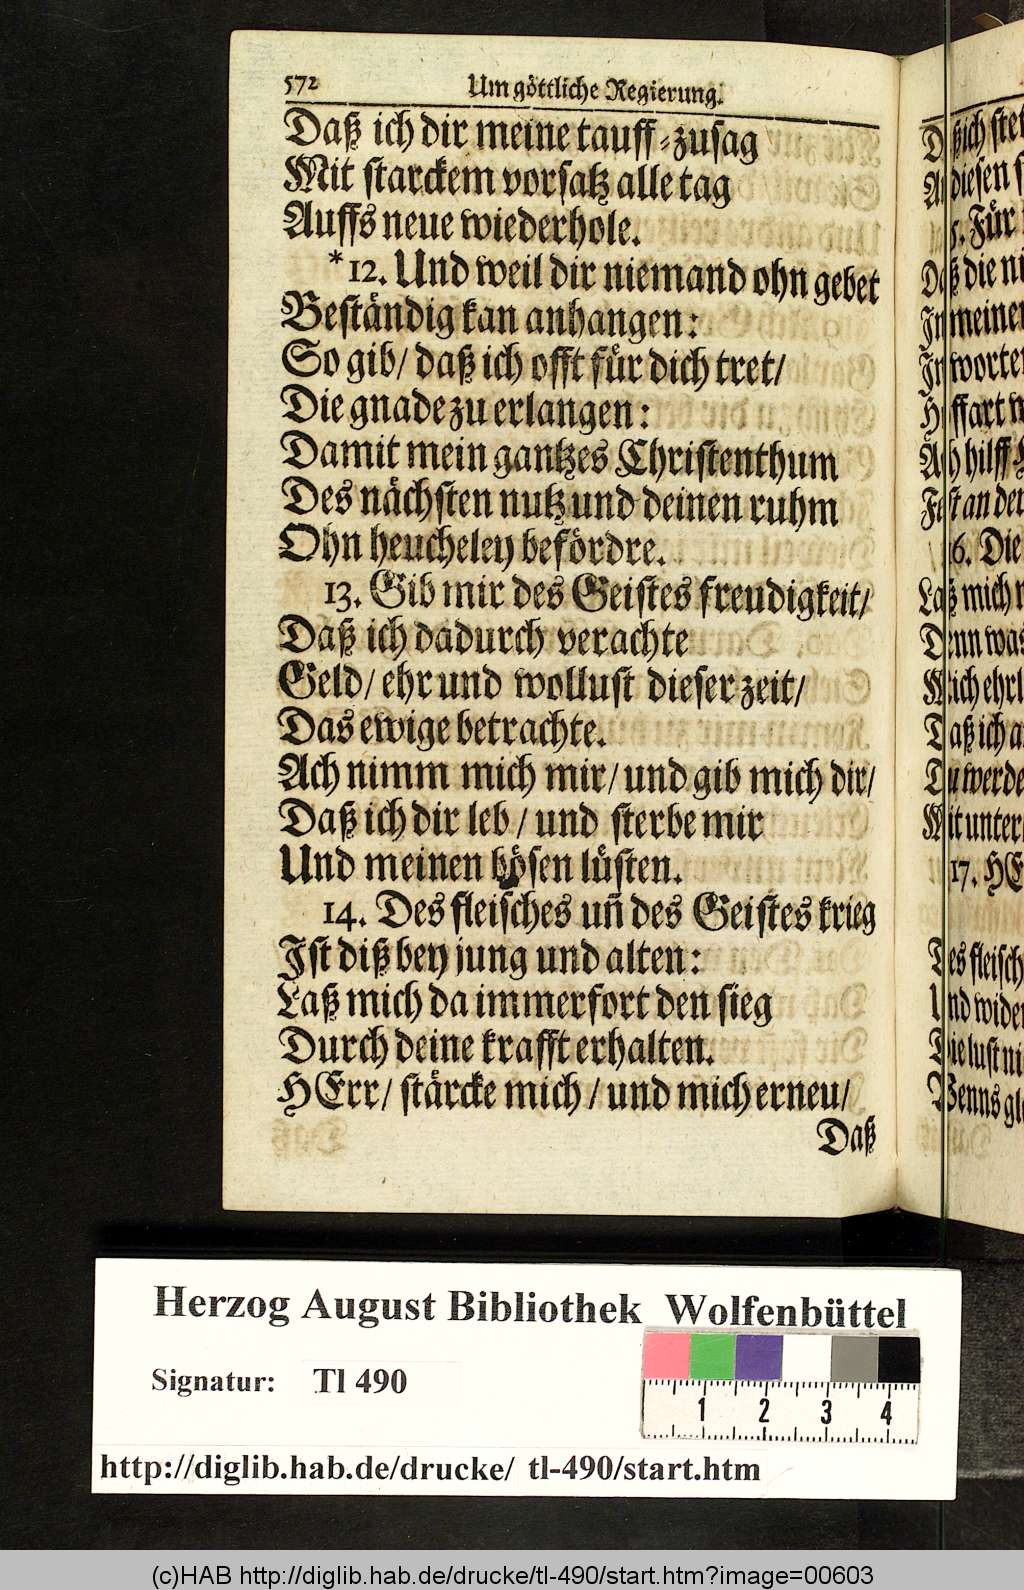 572 Um göttliche Regierung.
Daß ich dir meine tauff-zusag
Mit starckem vorsatz alle tag
Auffs neue wiederhole.
*12. Und weil dir niemand ohn gebet
Beständig kan anhangen:
So gib/ daß ich offt für dich tret/
Die gnade zu erlangen:
Damit mein gantzes Christenthum
Des nächsten nutz und deinen ruhm
Ohn heucheley befördre.
13. Gib mir des Geistes freudigkeit/
Daß ich dadurch verachte
Geld/ ehr und wollust dieser zeit/
Das ewige betrachte.
Ach nimm mich mir/ und gib mich dir/
Daß ich dir leb/ und sterbe mir
Und meinen bösen lüsten.
14. Des fleisches uñ des Geistes krieg
Ist diß bey jung und alten:
Laß mich da immerfort den sieg
Durch deine krafft erhalten.
HErr/ stärcke mich/ und mich erneu/
Daß
ßich
diesen
5. Für
ß die
meinen
worten
hilff
an den
16. Die
mich
Denn was
Mich ehrl
Daß ich
Du werde
Mit unter
17. HE
Des fleisch
Und wider
Die lust
Wenns
Herzog August Bibliothek Wolfenbüttel
Signatur: Tl 490
1 2 3 4
http://diglib.hab.de/drucke/ tl-490/start.htm
(c)HAB http://diglib.hab.de/drucke/tl-490/start.htm?image=00603